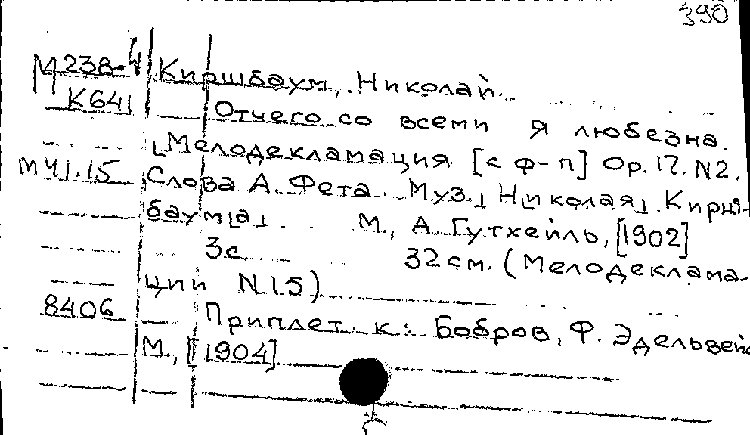 390
М238-4 Киршбаум, Николай
К641 Отчего со всеми я любезна.
[Мелодекламация [с ф-п] Ор.17. N2.
М41.15 Слова А. Фета. Муз.] Н[иколая] Кирш-
баум[а] М., А. Гутхейль, [1902]
3с 32см. (Мелодеклама-
ции N15)
8406 Приплет. к: Бобров, Ф. Эдельвейс
М., [1904]